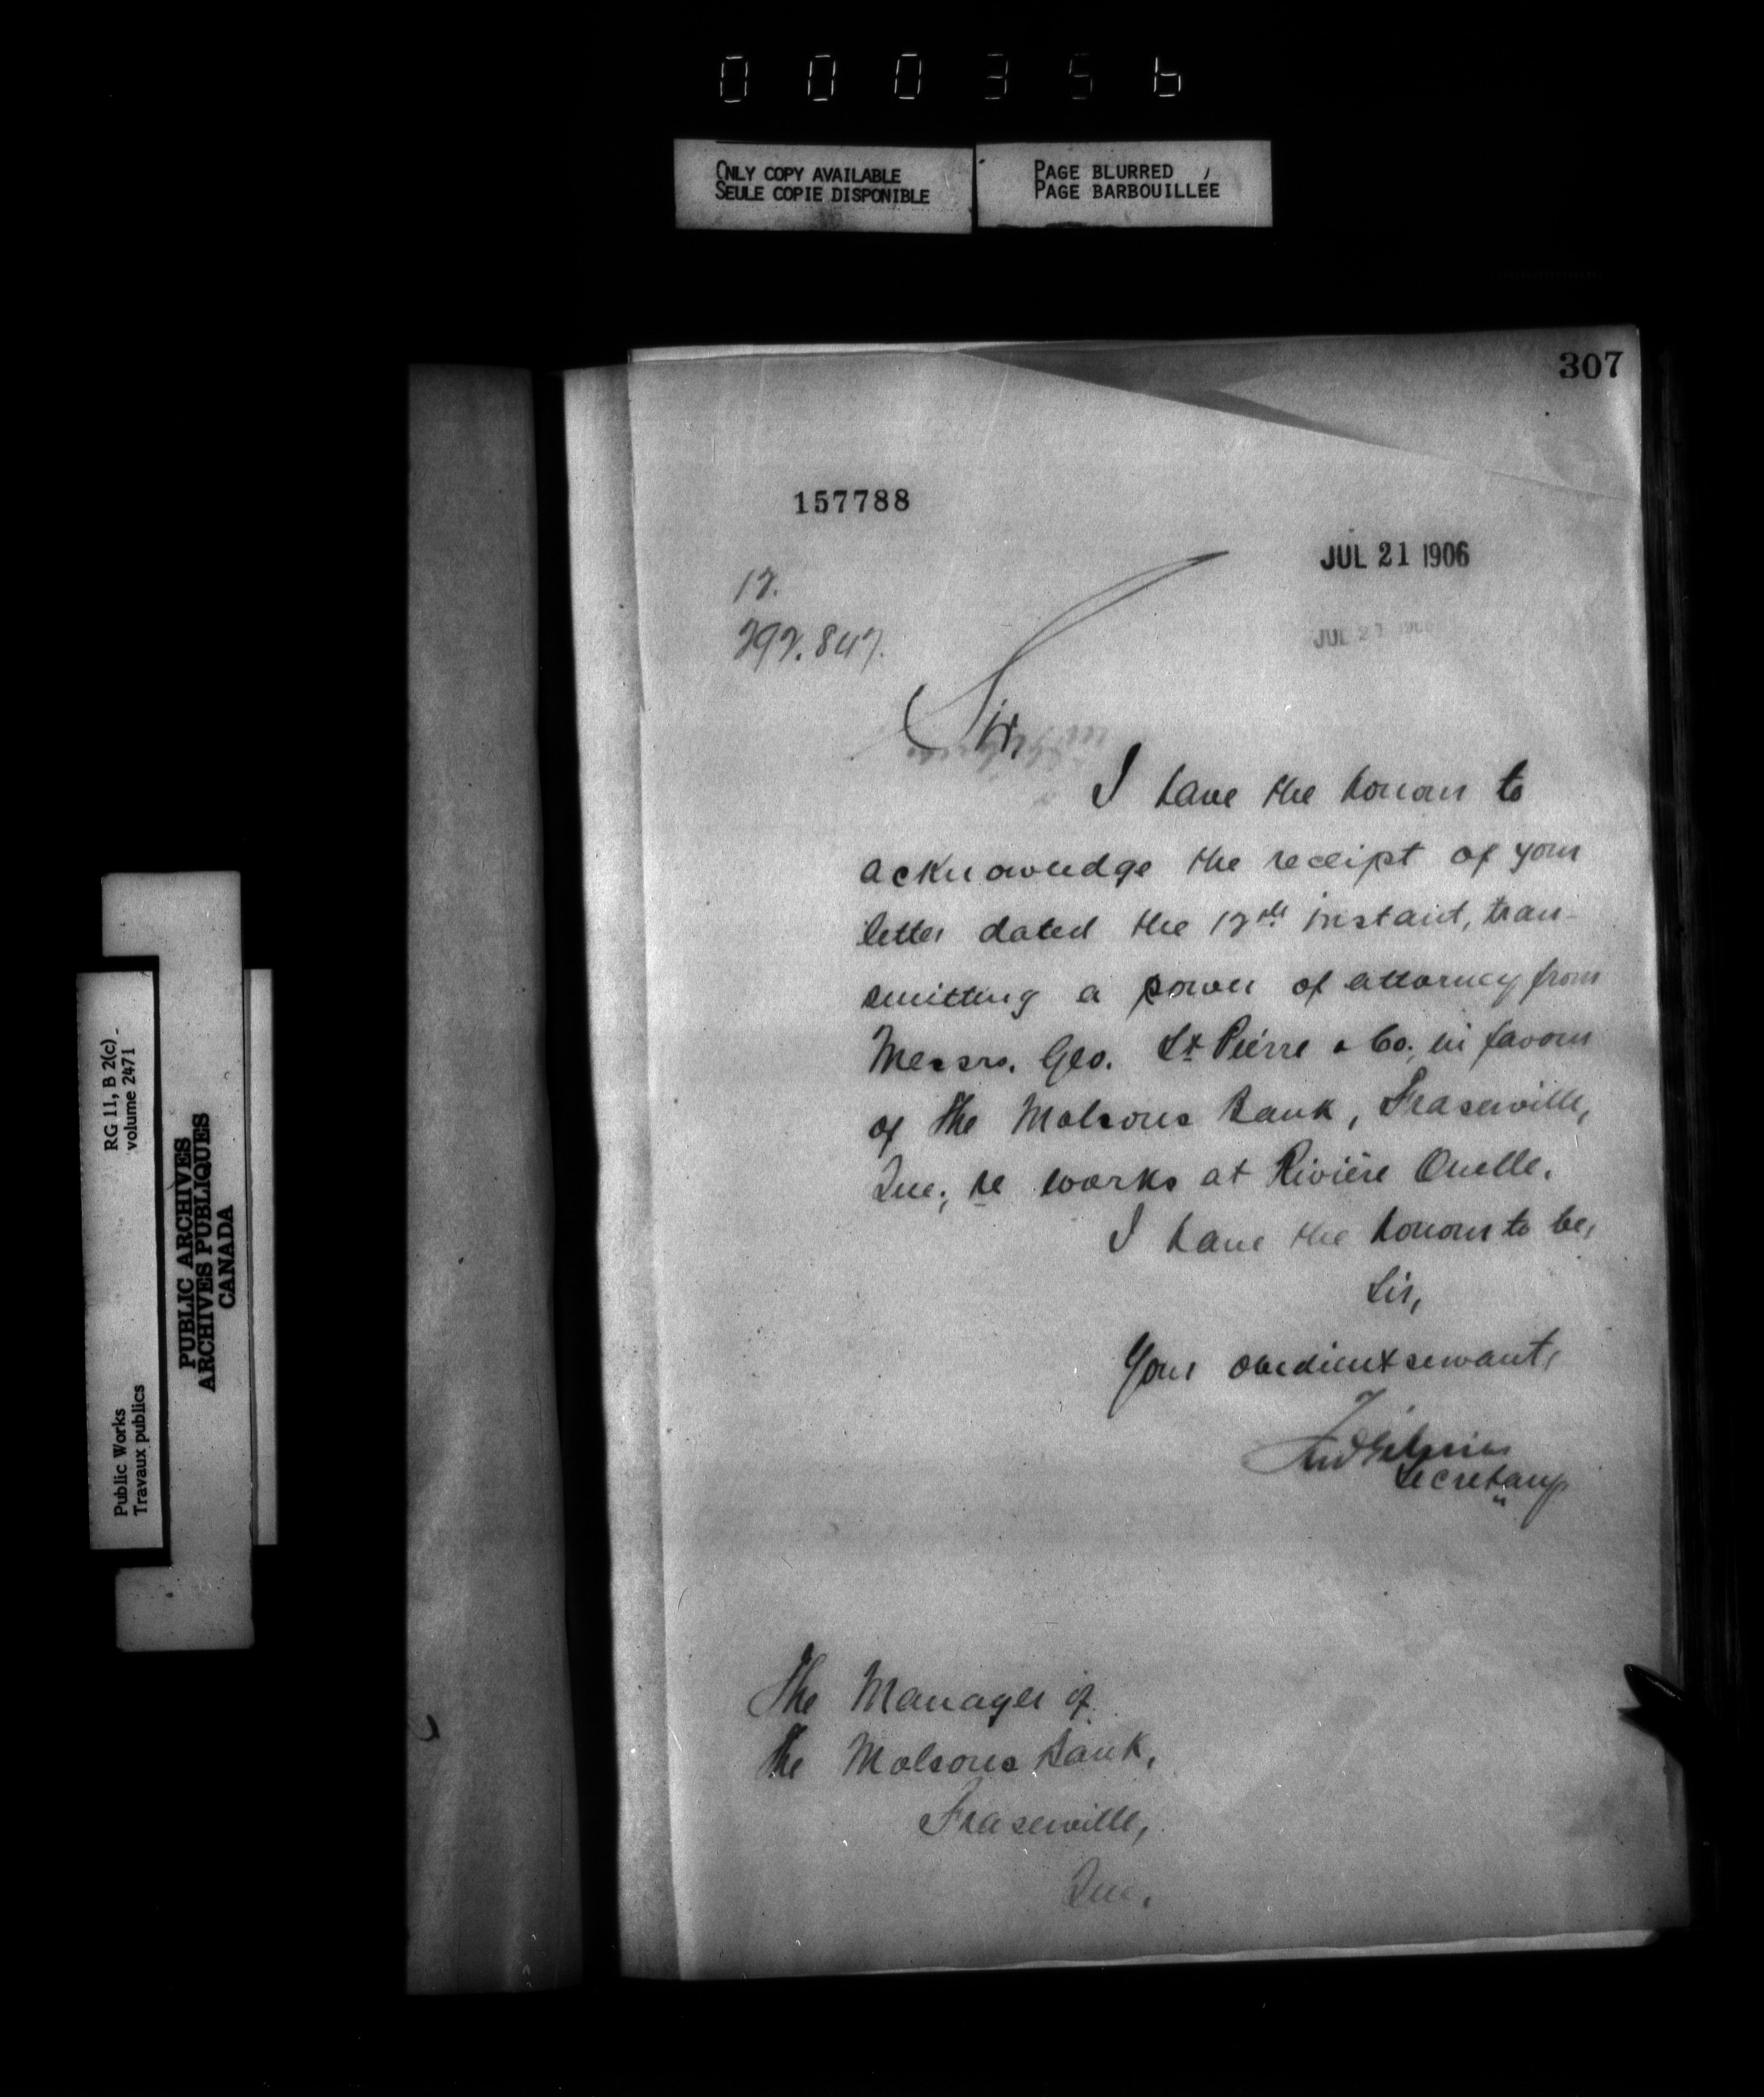 000356
ONLY COPY AVAILABLE
SEULE COPIE DISPONIBLE
PAGE BLURRED
PAGE BARBOUILLEE
307
157788
JUL 21 1906
JUL 21 1906
17.
292.847.
Sir,
I have the honour to
acknowledge the receipt of your
letter dated the 17th instant, tran-
smitting a power of attorney from
Messrs. Geo. St Pierre & Co., in favour
of the Molsons Bank, Fraserville,
Que., re works at Rivière Ouelle.
I have the honour to be,
Sir,
Your obedient servant,
Secretary
The Manager of
the Molsons Bank,
Fraserville,
Que.
RG 11, B 2(c)
volume 2471
Public Works
Travaux publics
PUBLIC ARCHIVES
ARCHIVES PUBLIQUES
CANADA